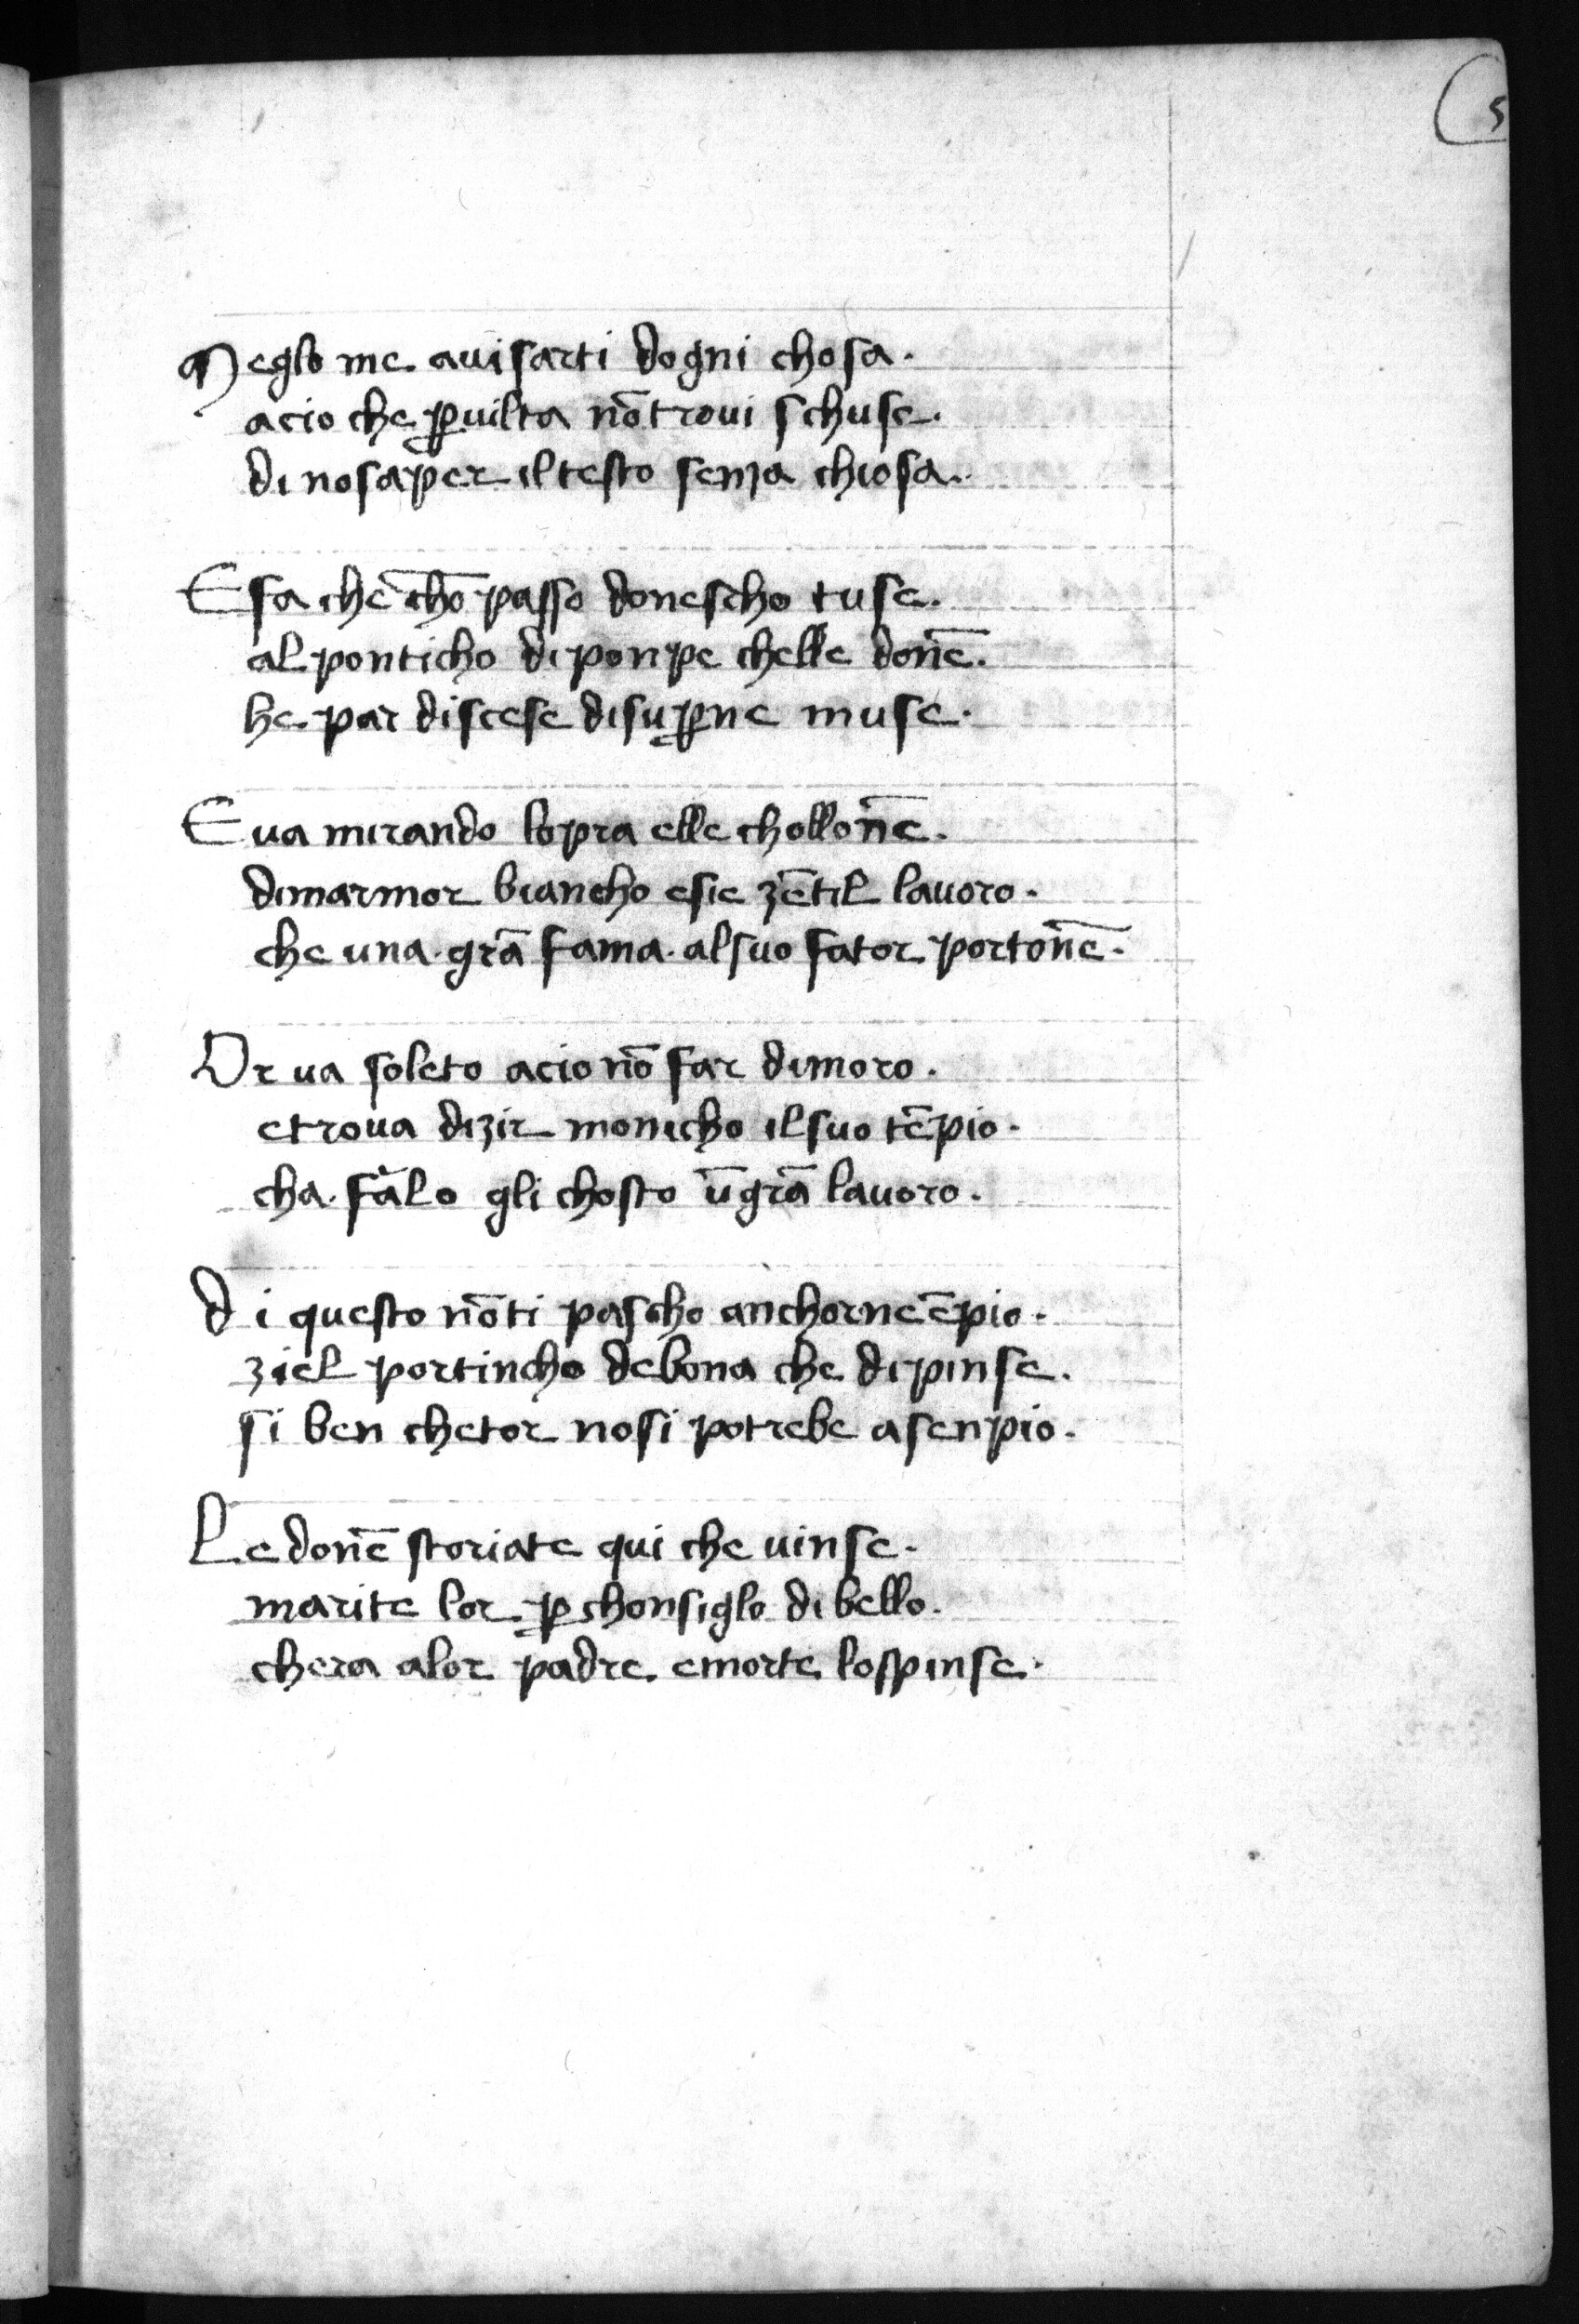 5
Meglo me auisarti dogni chosa.
acio che ꝑuilta nōtroui schuse.
di nosaper iltesto senza chiosa.
Esa che chō passo donescho tuse.
al ponticho di ponpe chelle donē.
he par discese disuꝑne muse.
Eua mirando lopra elle chollonē.
dimarmor biancho esie zētil lauoro.
che una. grā fama. alsuo fator portonē.
Or ua soleto acio nō far dimoro.
etroua dizir monicho ilsuo tēpio.
cha. fālo gli chosto ū grā lauoro.
di questo nōti pascho anchorne ēpio.
ziel portincho debona che dipinse.
si ben chetor nosi potrebe asenpio.
Le donē storiate qui che uinse.
marite lor. ꝑ chonsiglo di bello.
chera alor padre. emorte lospinse.